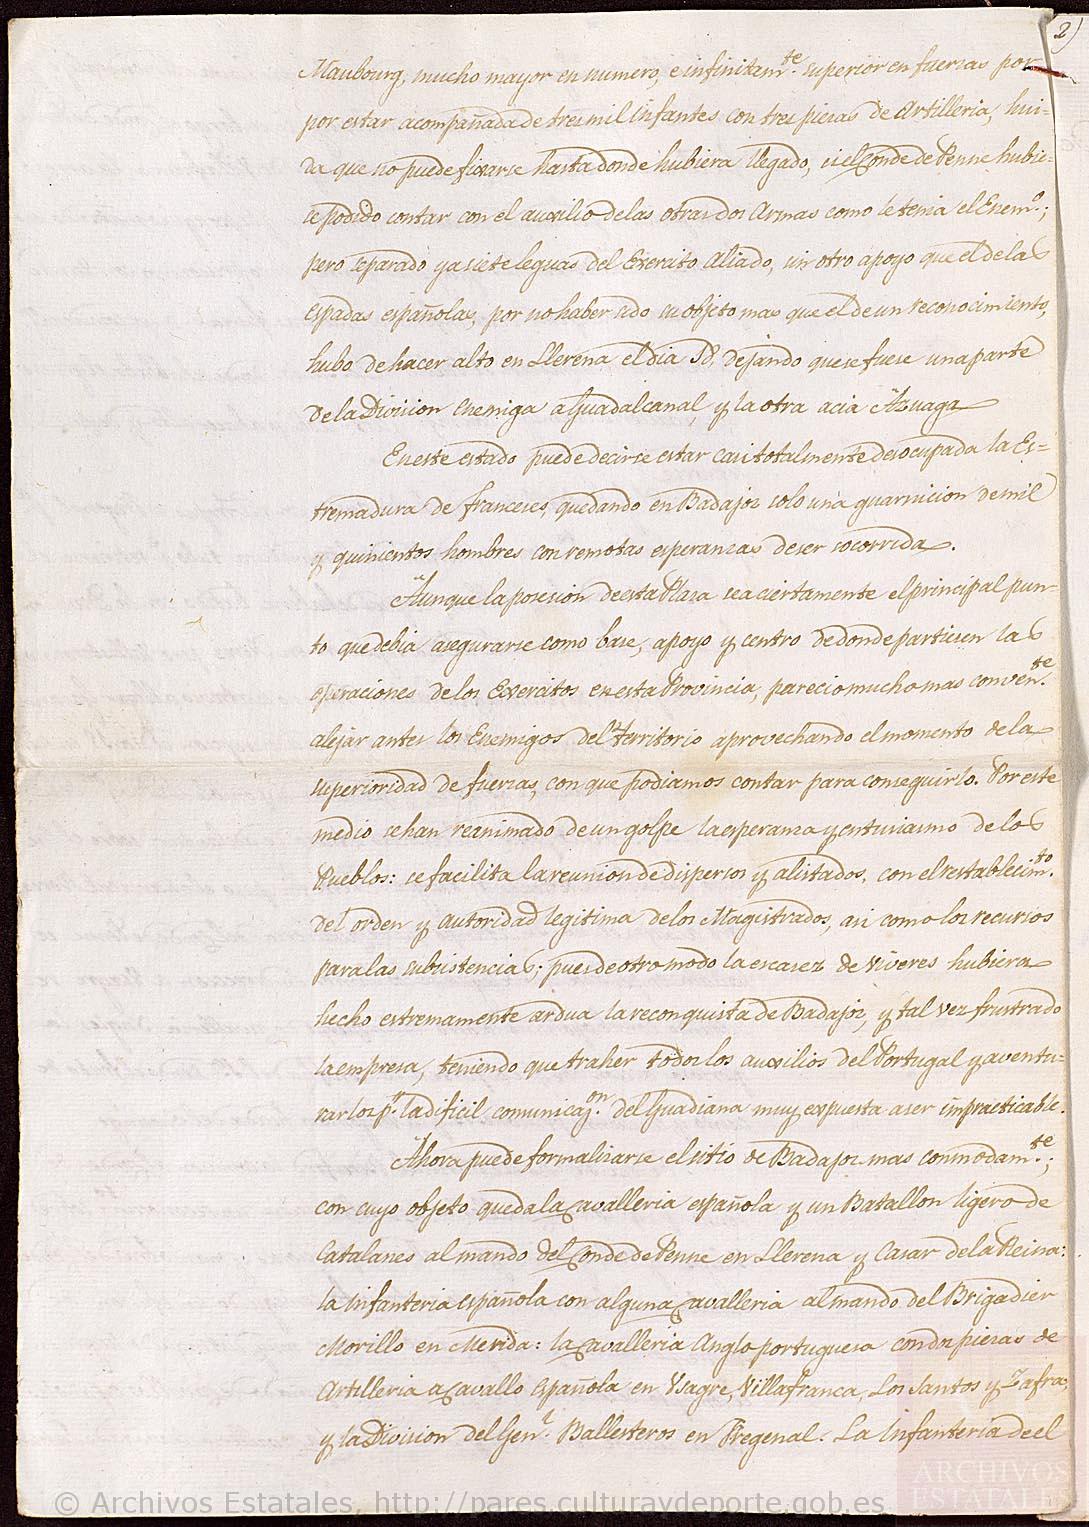 2)
Maubourg, mucho mayor en numero, e infinitam.te superior en fuerzas por
por estar acompañada de tres mil Infantes con tres piezas de Artilleria, hui-
da que no puede fixarse hasta donde hubiera llegado, si el Conde de Penne hubie-
se podido contar con el auxilio de las otras dos Armas como le tenia el Enem.o;
pero separado ya siete leguas del Exercito Aliado, sin otro apoyo que el de las
espadas españolas, por no haber sido su objeto mas que el de un reconocimiento,
hubo de hacer alto en Llerena el dia 18, dejando que se fuese una parte
de la Division Enemiga a Guadalcanal, y la otra acia Azuaga
En este estado puede decirse estar casi totalmente desocupada la Es-
tremadura de franceses, quedando en Badajoz solo una guarnicion de mil
y quinientos hombres con remotas esperanzas de ser socorrida.
Aunque la posesion de esta Plaza sea ciertamente el principal pun-
to que debia asegurarse como base, apoyo y centro de donde partiesen las
operaciones de los Exercitos en esta Provincia, parecio mucho mas conven.te
alejar antes los Enemigos del territorio aprovechando el momento de la
superioridad de fuerzas, con que podiamos contar para conseguirlo. Por este
medio se han reanimado de un golpe la esperanza y entusiasmo de los
Pueblos: se facilita la reunion de dispersos y alistados, con el restablecim.to
del orden y autoridad legitima de los Magistrados, asi como los recursos
para las subsistencias; pues de otro modo la escasez de viveres hubiera
hecho estremamente ardua la reconquista de Badajoz, y tal vez frustrado
la empresa, teniendo que traher todos los auxilios del Portugal y aventu-
rarlos p.r la dificil comunicaz.on del Guadiana muy expuesta a ser impracticable.
Ahora puede formalizarse el sitio de Badajoz mas commodam.te;
con cuyo objeto queda la Cavalleria española y un Batallon ligero de
Catalanes al mando del Conde de Penne en Llerena y Casar de la Reina:
la Infanteria española con alguna Cavalleria al mando del Brigadier
Morillo en Merida: la Cavalleria Anglo portuguesa con dos piezas de
Artilleria a Cavallo española en Usagre, Villafranca, Los Santos y Zafra,
y la Division del Gen.l Ballesteros en Fregenal. La Infanteria de el
ARCHIVOS
ESTATALES
© Archivos Estatales, http://pares.culturaydeporte.gob.es